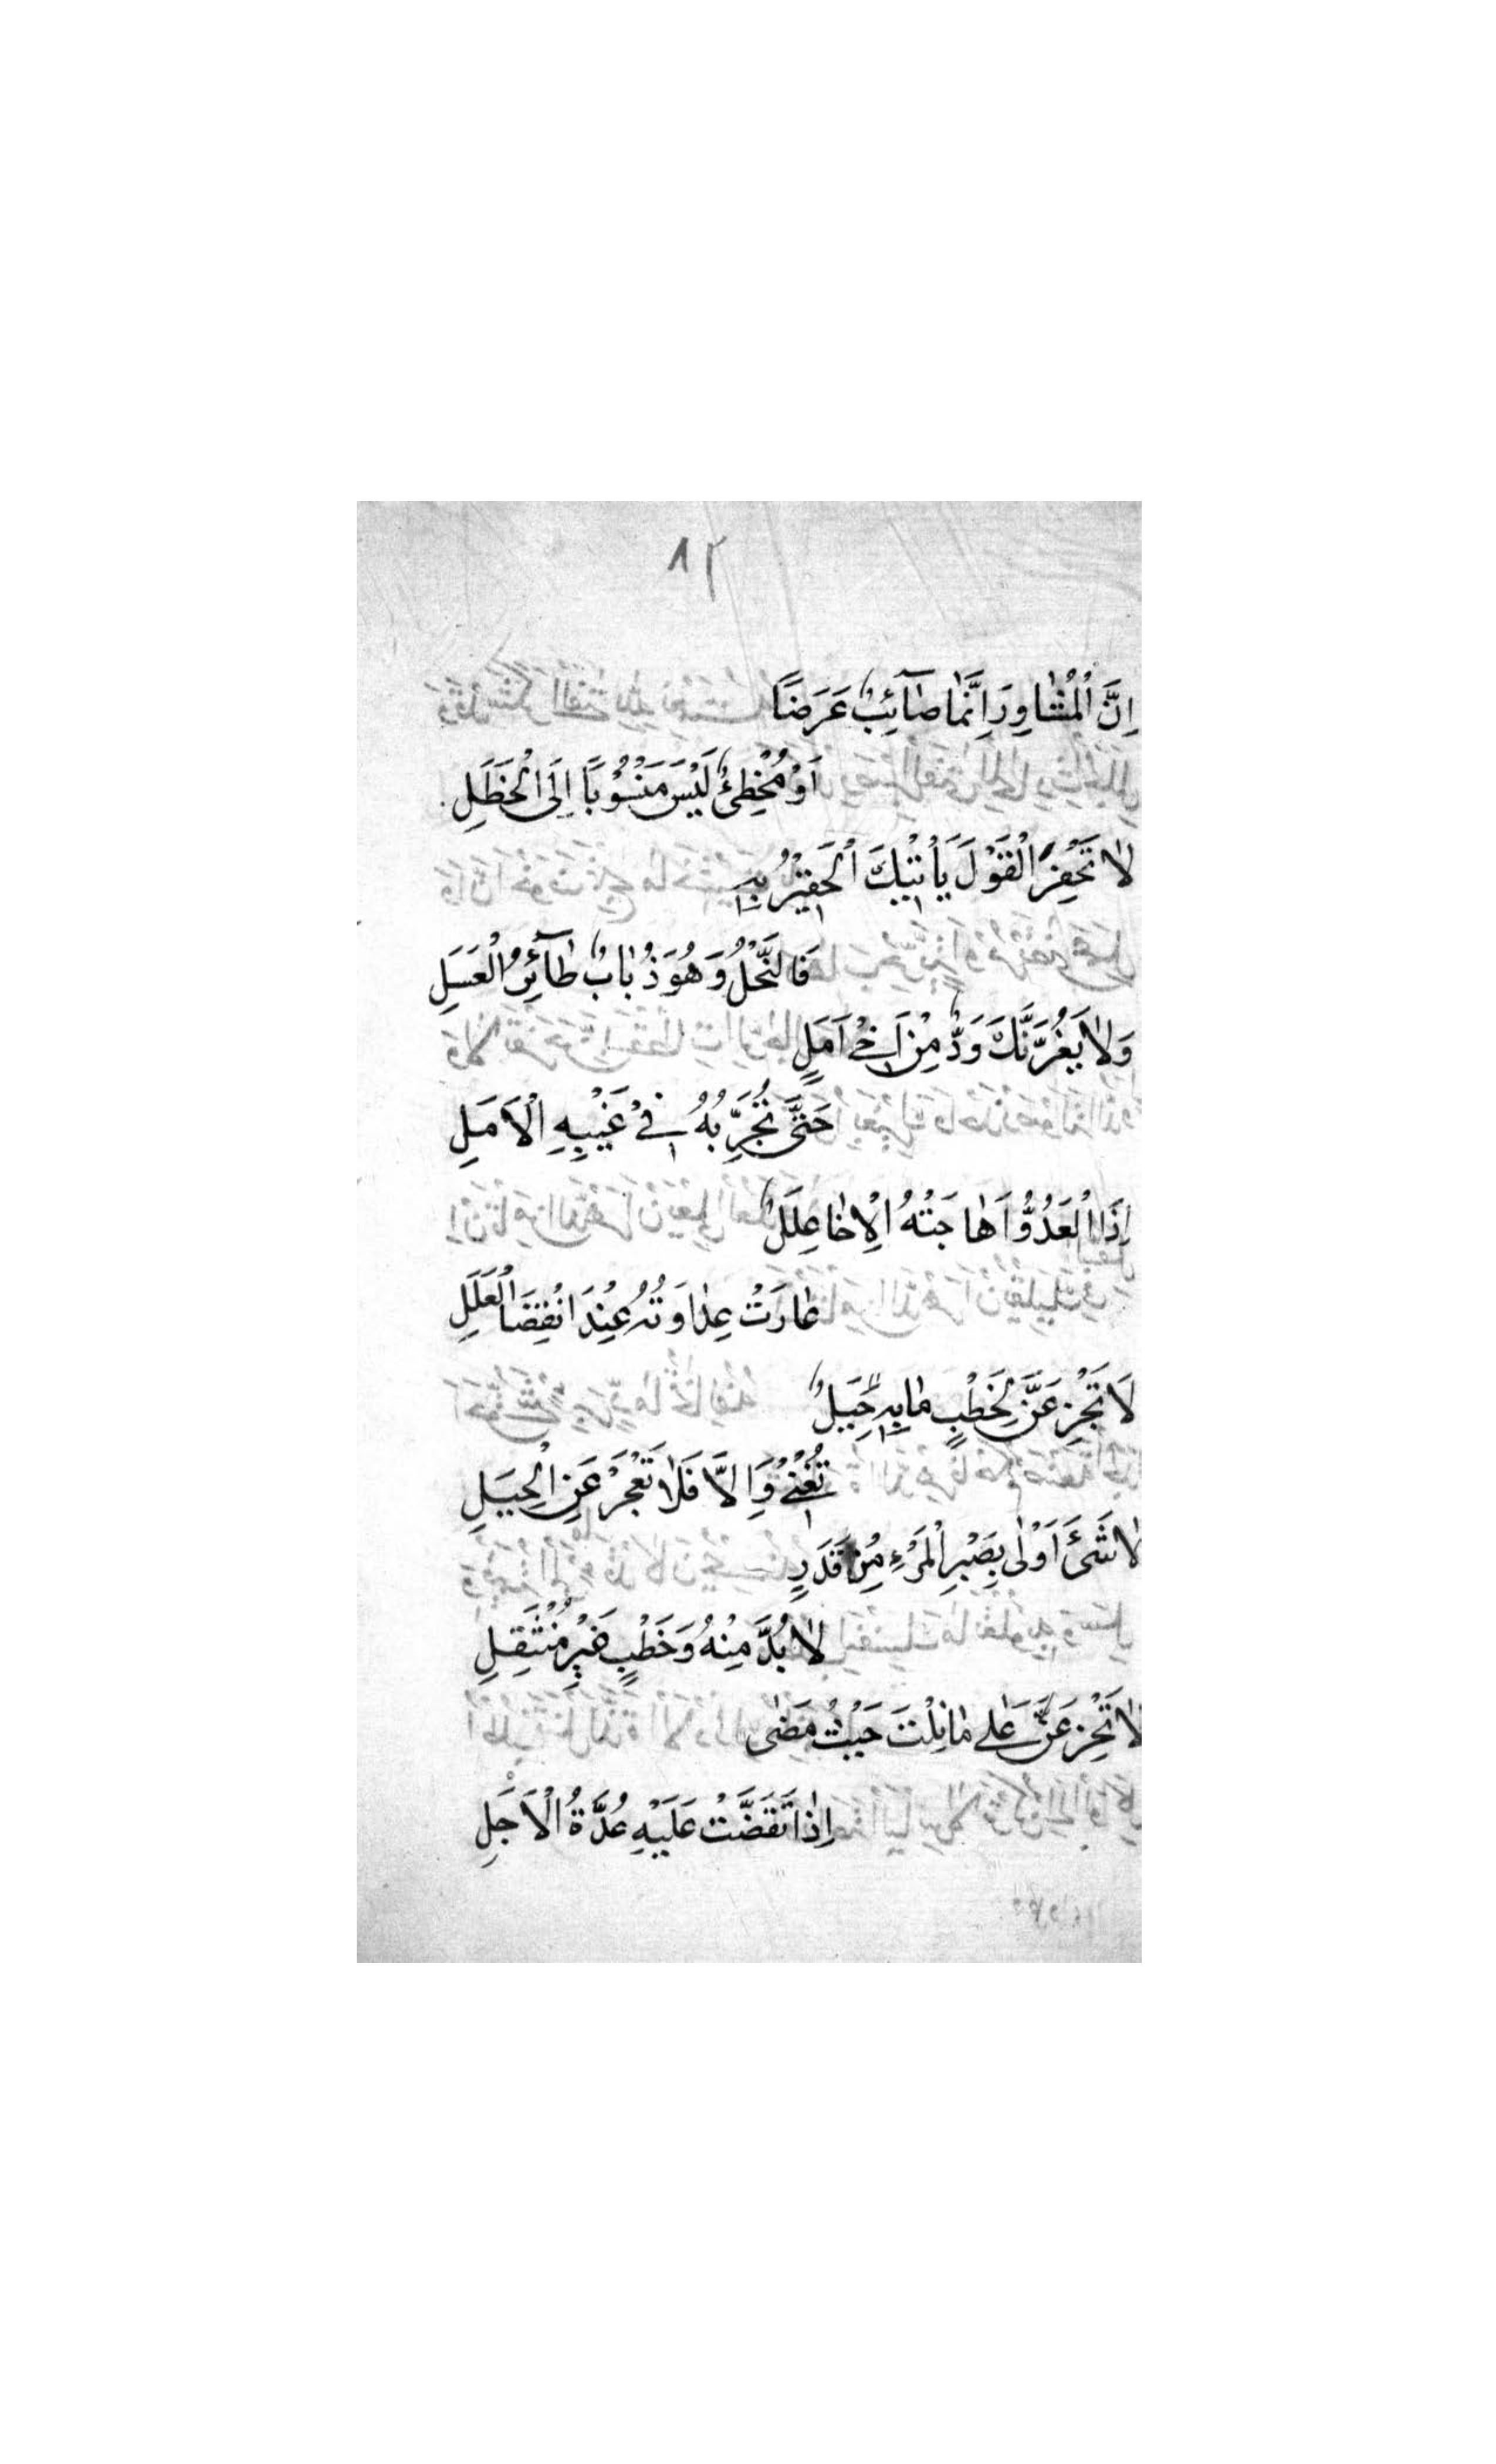 ١٨
اِنَّ الْمُشَاوِرَ اِنَّمَا صَآئِبٌ عَرَضًا
اَوْ مُخْطِئٌ لَيْسَ مَنْسُوْبًا اِلَى الْخَطَلِ
لَا تَحْقِرِ الْقَوْلَ يَأْتِيْكَ الْحَقِيْرُ بِهِ
فَالنَّحْلُ وَهُوَ ذُبَابٌ طَآئِرُ الْعَسَلِ
وَلَا يَغُرَّنَّكَ وَدٌّ مِنْ اَخِيْ اَمَلٍ
حَتّٰى تُجَرِّبَهُ فِيْ غَيْبِهِ الْاَمَلِ
اِذَا الْعَدُوُّ اَهَاجَتْهُ الْاِخَا عِلَلٌ
عَارَتْ عِدَاوَتُهُ عِنْدَ انْقِضَا الْعَلَلِ
لَا تَجْزَعَنَّ لِخَطْبٍ مَا بِهِ حِيَلٌ
تُغْنِيْ وَاِلَّا فَلَا تَعْجَزْ عَنِ الْحِيَلِ
لَا شَئَ اَوْلٰى بِصَبْرِ الْمَرْءِ مِنْ قَدَرٍ
لَا بُدَّ مِنْهُ وَخَطْبٍ غَيْرِ مُنْتَقِلِ
لَا تَجْزَعَنَّ عَلٰى مَا نِلْتَ حَيْثُ مَضٰى
اِذَا تَقَضَّتْ عَلَيْهِ عُدَّةُ الْاَجَلِ